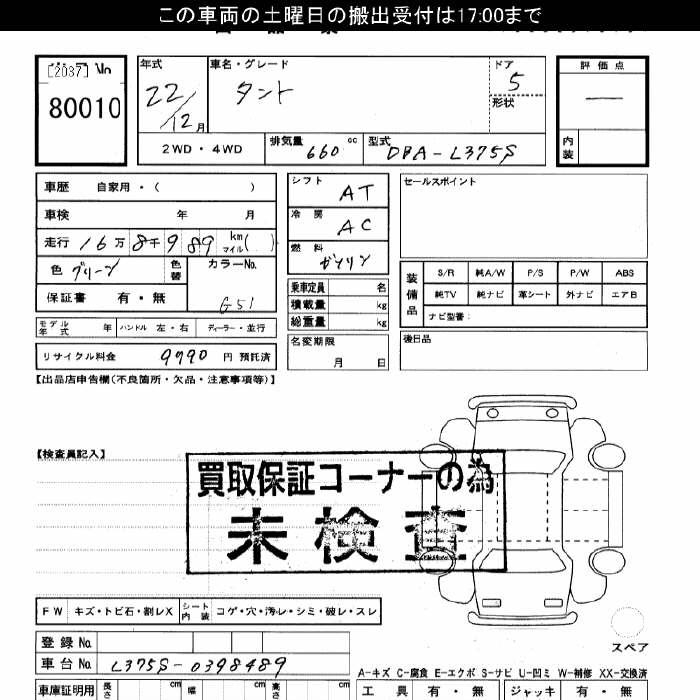 この車両の土曜日の搬出受付は17:00まで
[2037] No
80010
年式
22/12月
車名・グレード
タント
ドア
5
形状
評価点
—
2WD・4WD
排気量 660 cc
型式 DBA-L375S
内装
車歴 自家用・( )
車検 年 月
走行 16万8千989 km マイル( )
色 グリーン
色替
カラーNo.
G51
保証書 有・無
モデル年式 年 ハンドル 左・右 ディーラー・並行
リサイクル料金 9790 円 預託済
シフト AT
冷房 AC
燃料 ガソリン
乗車定員 名
積載量 kg
総重量 kg
名変期限
月 日
セールスポイント
装備品
S/R 純A/W P/S P/W ABS
純TV 純ナビ 革シート 外ナビ エアB
ナビ型番:
後日品
【出品店申告欄(不良箇所・欠品・注意事項等)】
【検査員記入】
買取保証コーナーの為
未検査
FW キズ・トビ石・割レX シート内装 コゲ・穴・汚レ・シミ・破レ・スレ
スペア
登録No.
車台No. L375S-0398489
A-キズ C-腐食 E-エクボ S-サビ U-凹ミ W-補修 XX-交換済
車庫証明用 長さ cm 幅 cm 高さ cm
工具 有・無 ジャッキ 有・無